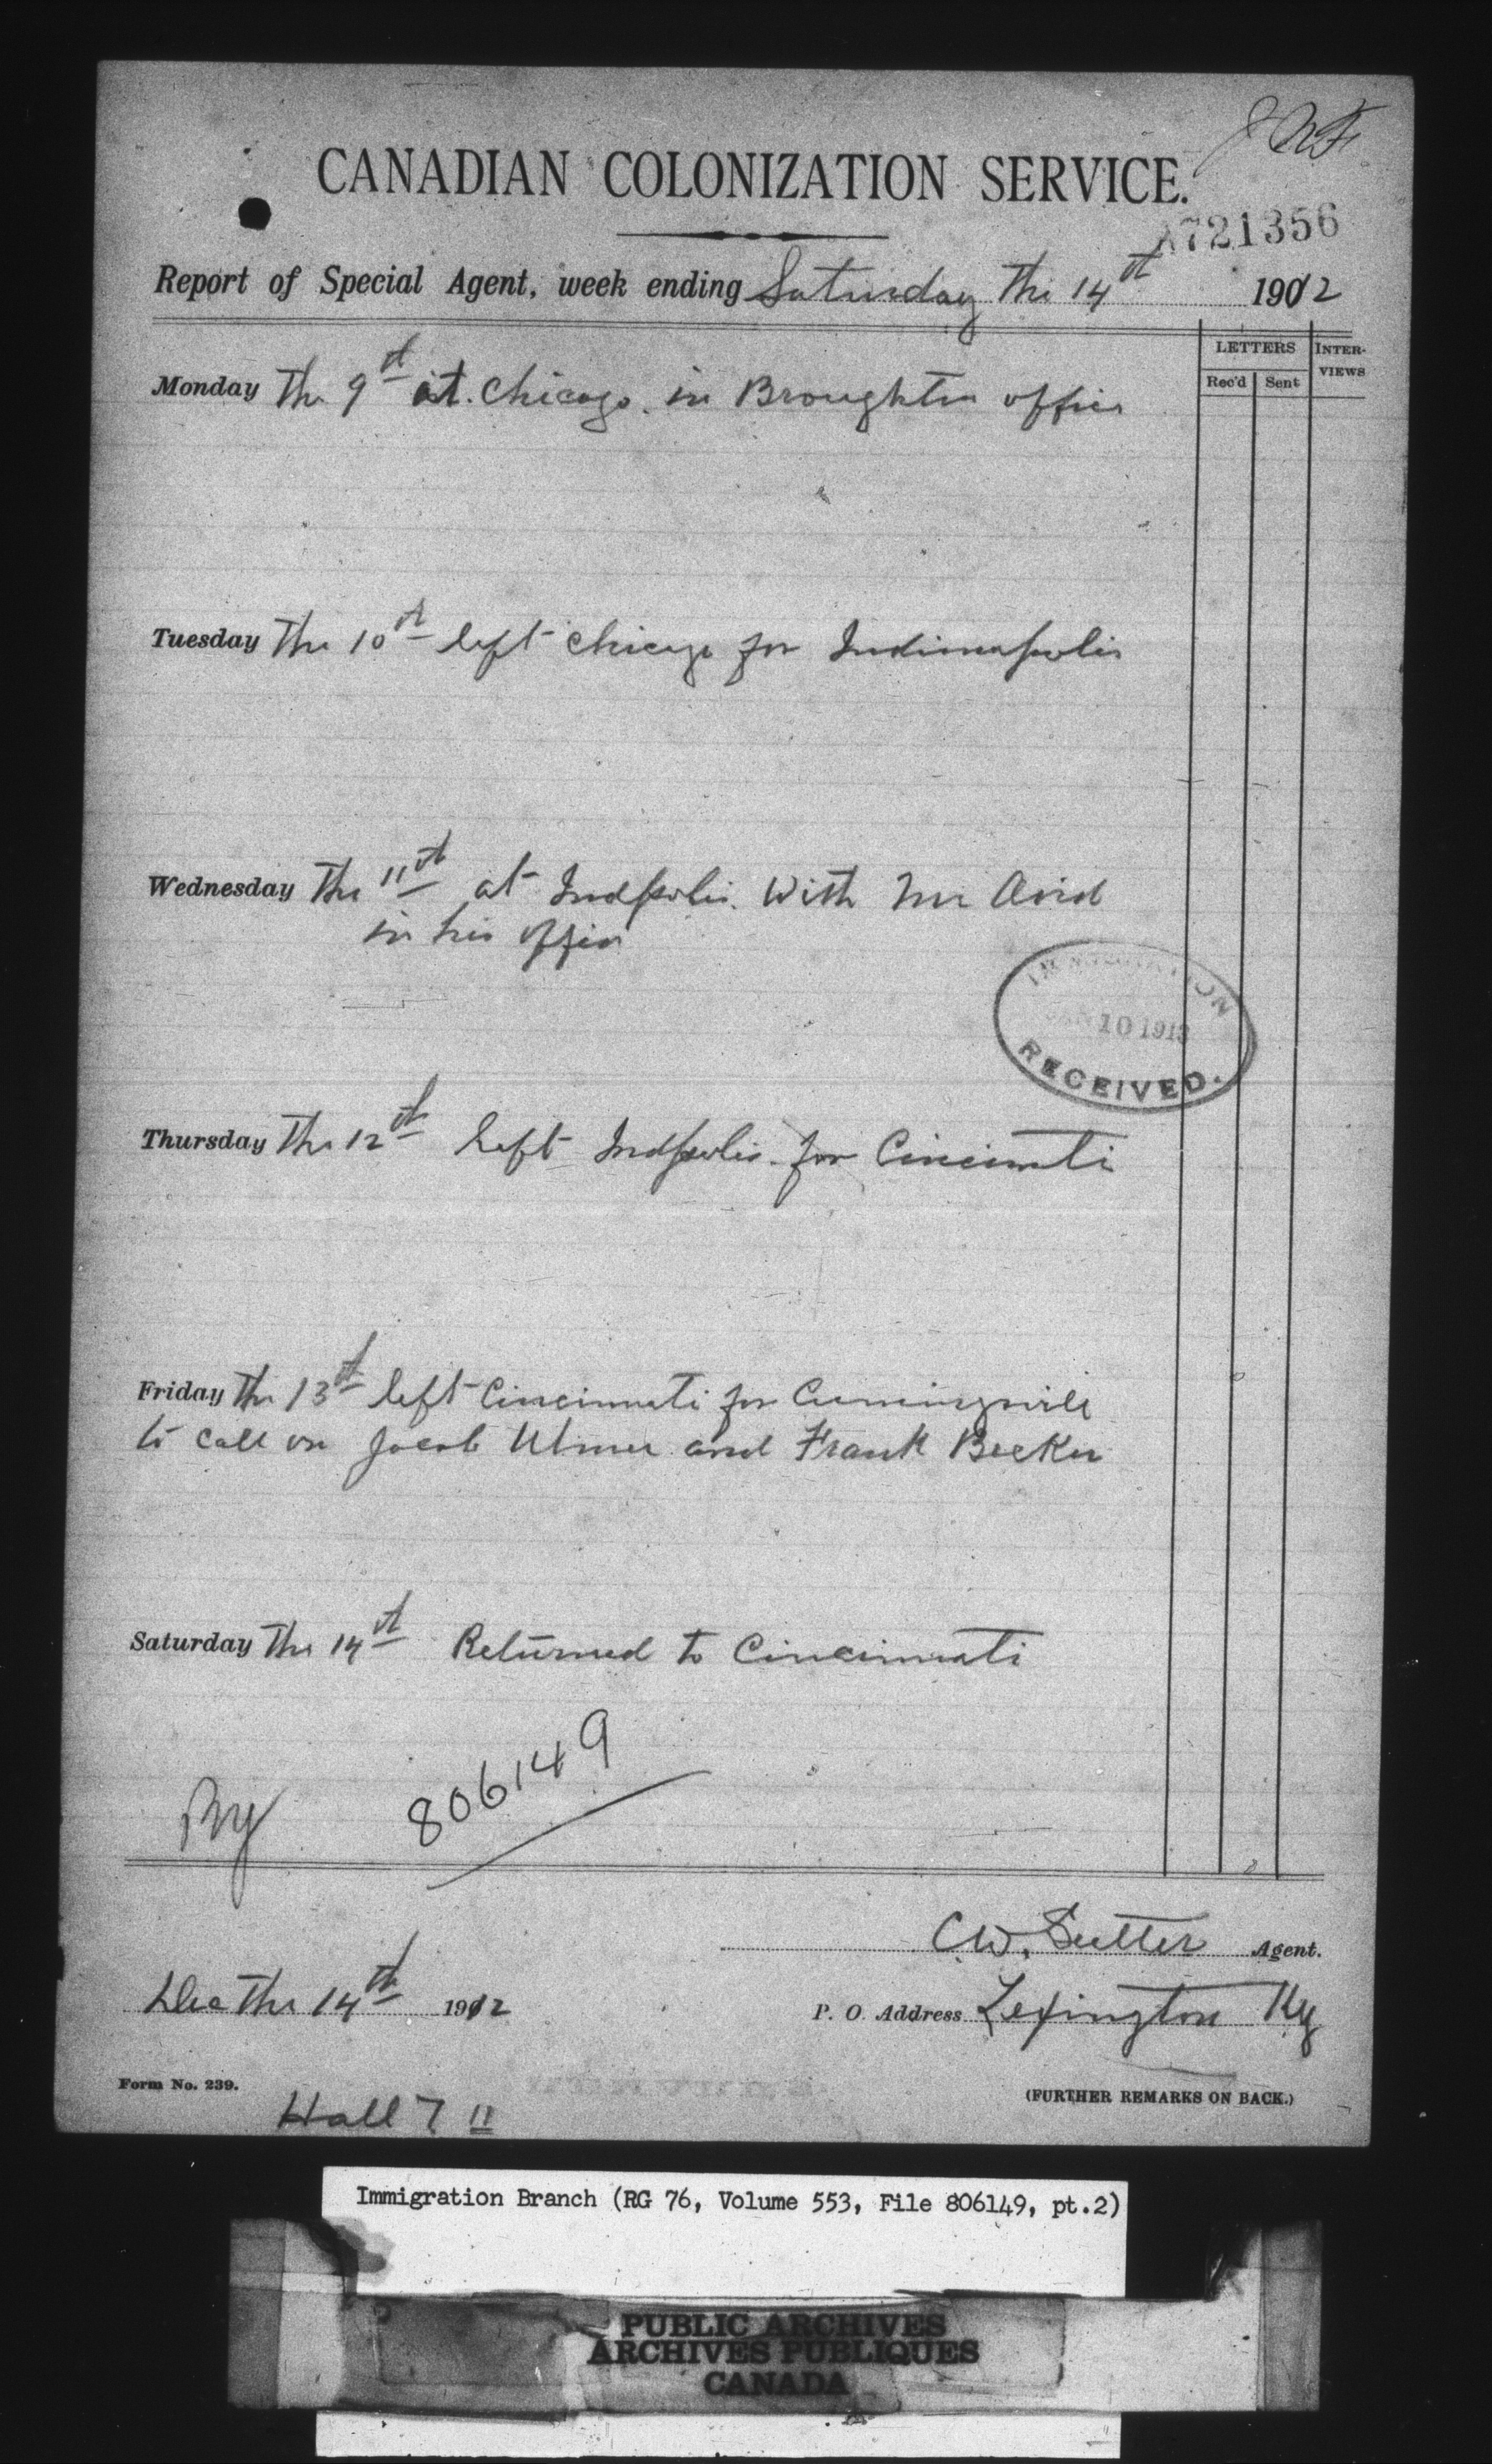 CANADIAN COLONIZATION SERVICE.
A721356
Report of Special Agent, week ending Saturday The 14th 1912
LETTERS INTER-VIEWS
Rec'd Sent
Monday The 9th at Chicago. in Broughton office
Tuesday The 10th left Chicago for Indianapolis
Wednesday The 11th at Indpolis. With Mr Arid
in his office
IMMIGRATION
JAN 10 1913
RECEIVED.
Thursday The 12th left Indpolis. for Cincinnati
Friday The 13th left Cincinnati for Cumingsville
to call on Jacob Ulmer and Frank Becker
Saturday The 14th Returned to Cincinnati
806149
C.W. Sutter Agent.
Dec The 14th 1912
P. O. Address Lexington Ky
Form No. 239.
(FURTHER REMARKS ON BACK.)
Hall 7 11
Immigration Branch (RG 76, Volume 553, File 806149, pt.2)
PUBLIC ARCHIVES
ARCHIVES PUBLIQUES
CANADA